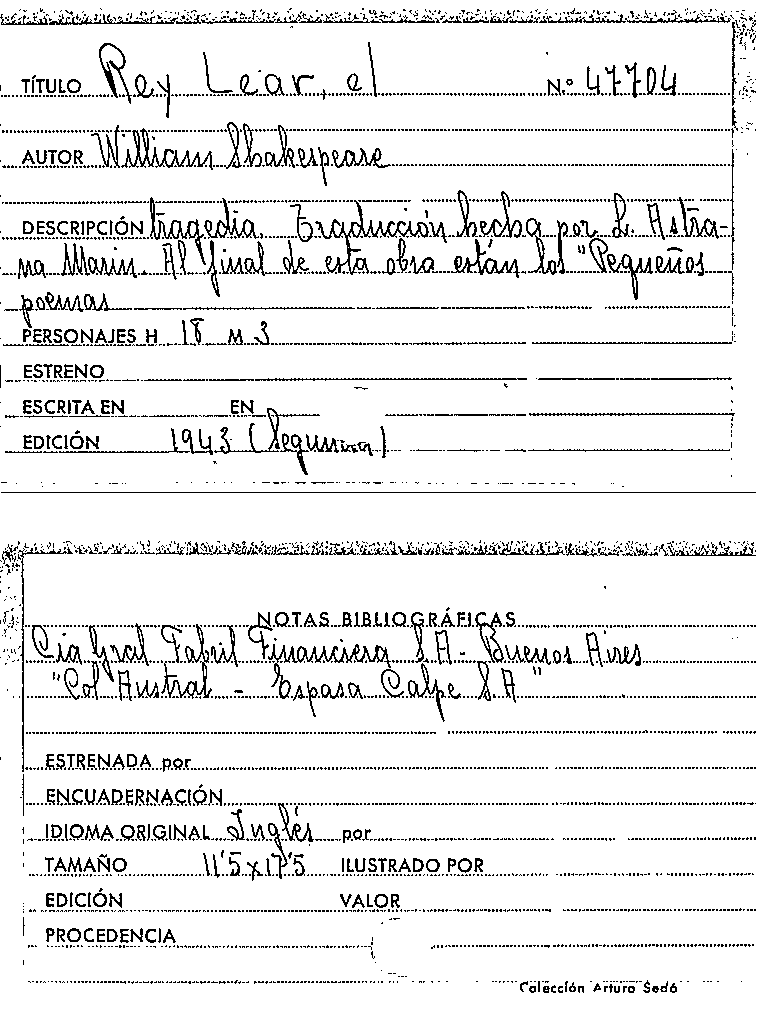 TÍTULO Rey Lear, el N.º 47704
AUTOR William Shakespeare
DESCRIPCIÓN tragedia. Traducción hecha por L. Astra-
na Marin. Al final de esta obra están los "Pequeños
poemas
PERSONAJES H 18 M 3
ESTRENO
ESCRITA EN EN
EDICIÓN 1943 (Segunda)
NOTAS BIBLIOGRÁFICAS
Cia Gral Fabril Financiera S.A - Buenos Aires
"Col Austral - Espasa Calpe S.A"
ESTRENADA por
ENCUADERNACIÓN
IDIOMA ORIGINAL Inglés por
TAMAÑO 11'5 x 17'5 ILUSTRADO POR
EDICIÓN VALOR
PROCEDENCIA
Colección Arturo Sedó